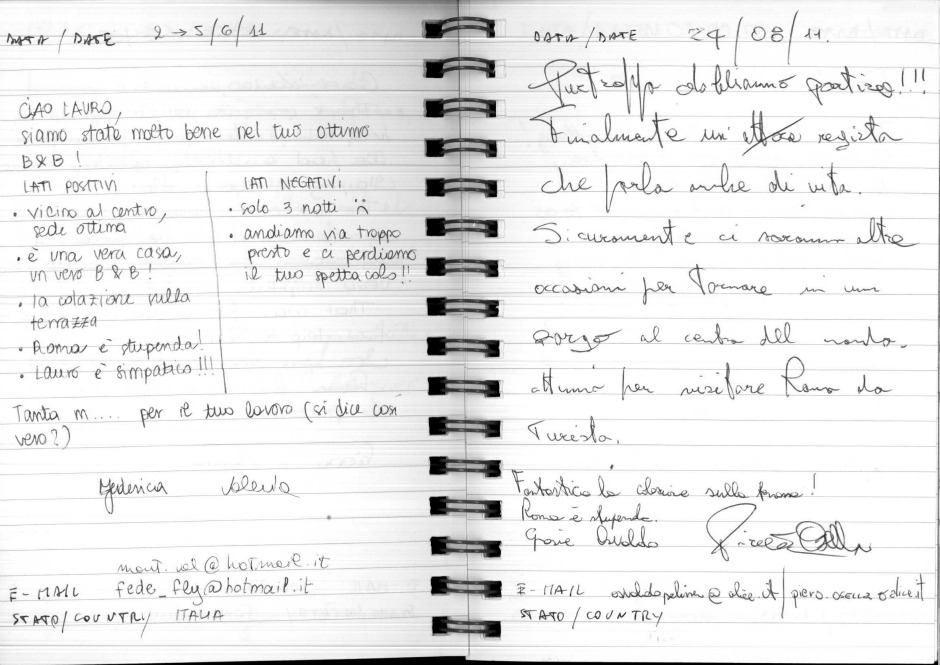 DATA / DATE 2 → 5/6/11
CIAO LAURO,
siamo state molto bene nel tuo ottimo
B & B !
LATI POSITIVI
• vicino al centro,
sede ottima
• è una vera casa,
un vero B & B !
• la colazione sulla
terrazza
• Roma è stupenda!
• Lauro è simpatico!!!
LATI NEGATIVI
• solo 3 notti
• andiamo via troppo
presto e ci perdiamo
il tuo spettacolo!!
Tanta m.... per il tuo lavoro (si dice così
vero?)
Federica Valeria
mont.val@hotmail.it
E-MAIL fede_fly@hotmail.it
STATO/COUNTRY ITALIA
DATA / DATE 24/08/11.
Purtroppo dobbiamo partire!!!
Finalmente un' attore regista
che parla anche di vita.
Sicuramente ci saranno altre
occasioni per Tornare in un
borgo al centro del mondo.
attimi per visitare Roma da
Turista.
Fantastica la colazione sulla !
Roma è stupenda.
Grazie Osvaldo
E-MAIL @ alice.it / piero. alice.it
STATO / COUNTRY